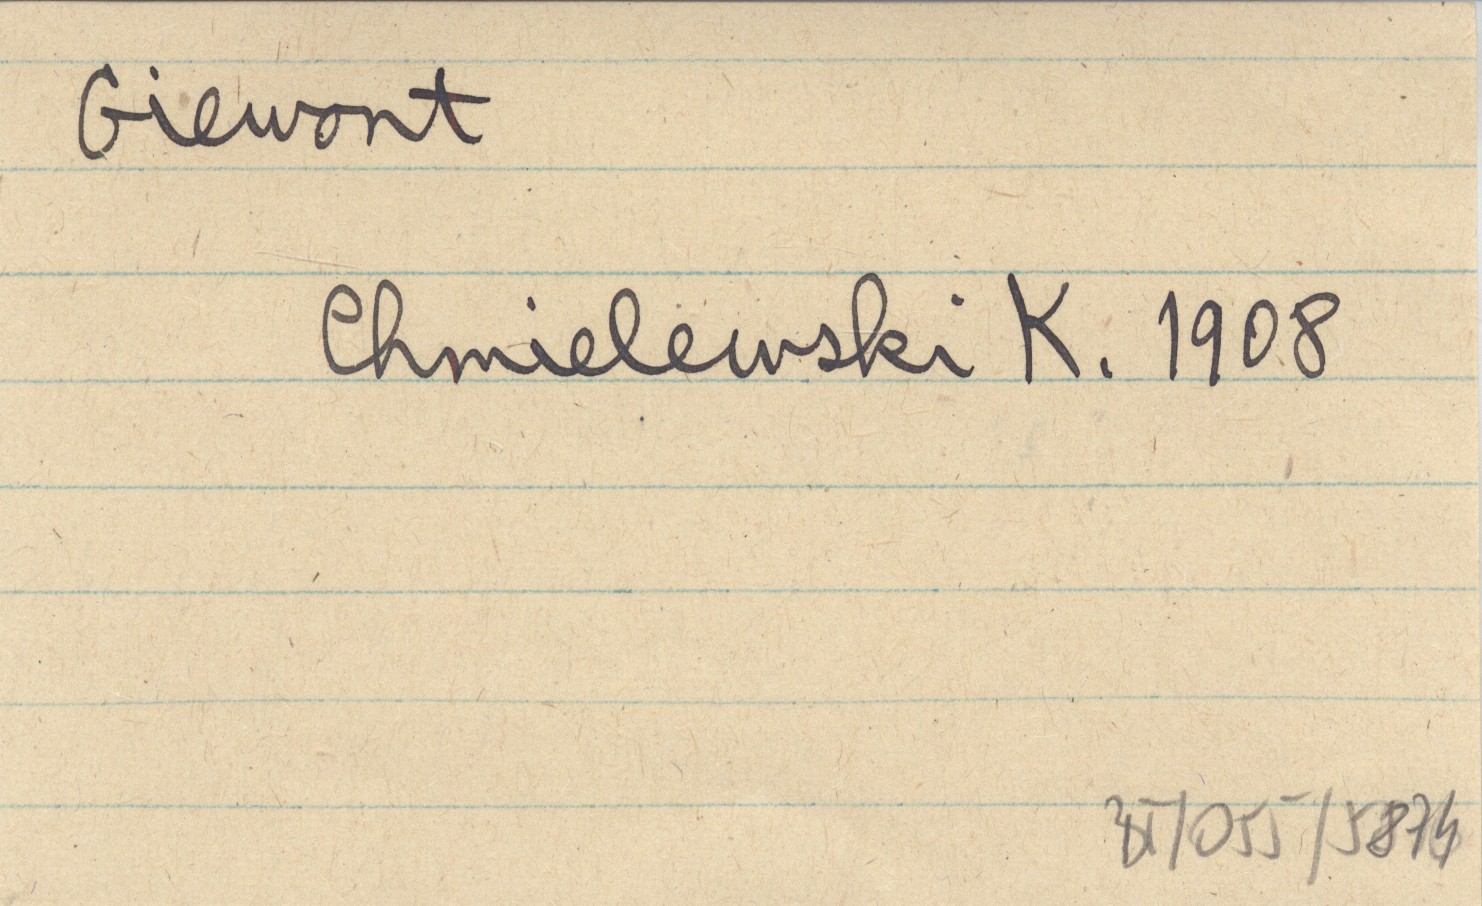 Giewont
Chmielewski K. 1908
/055/587